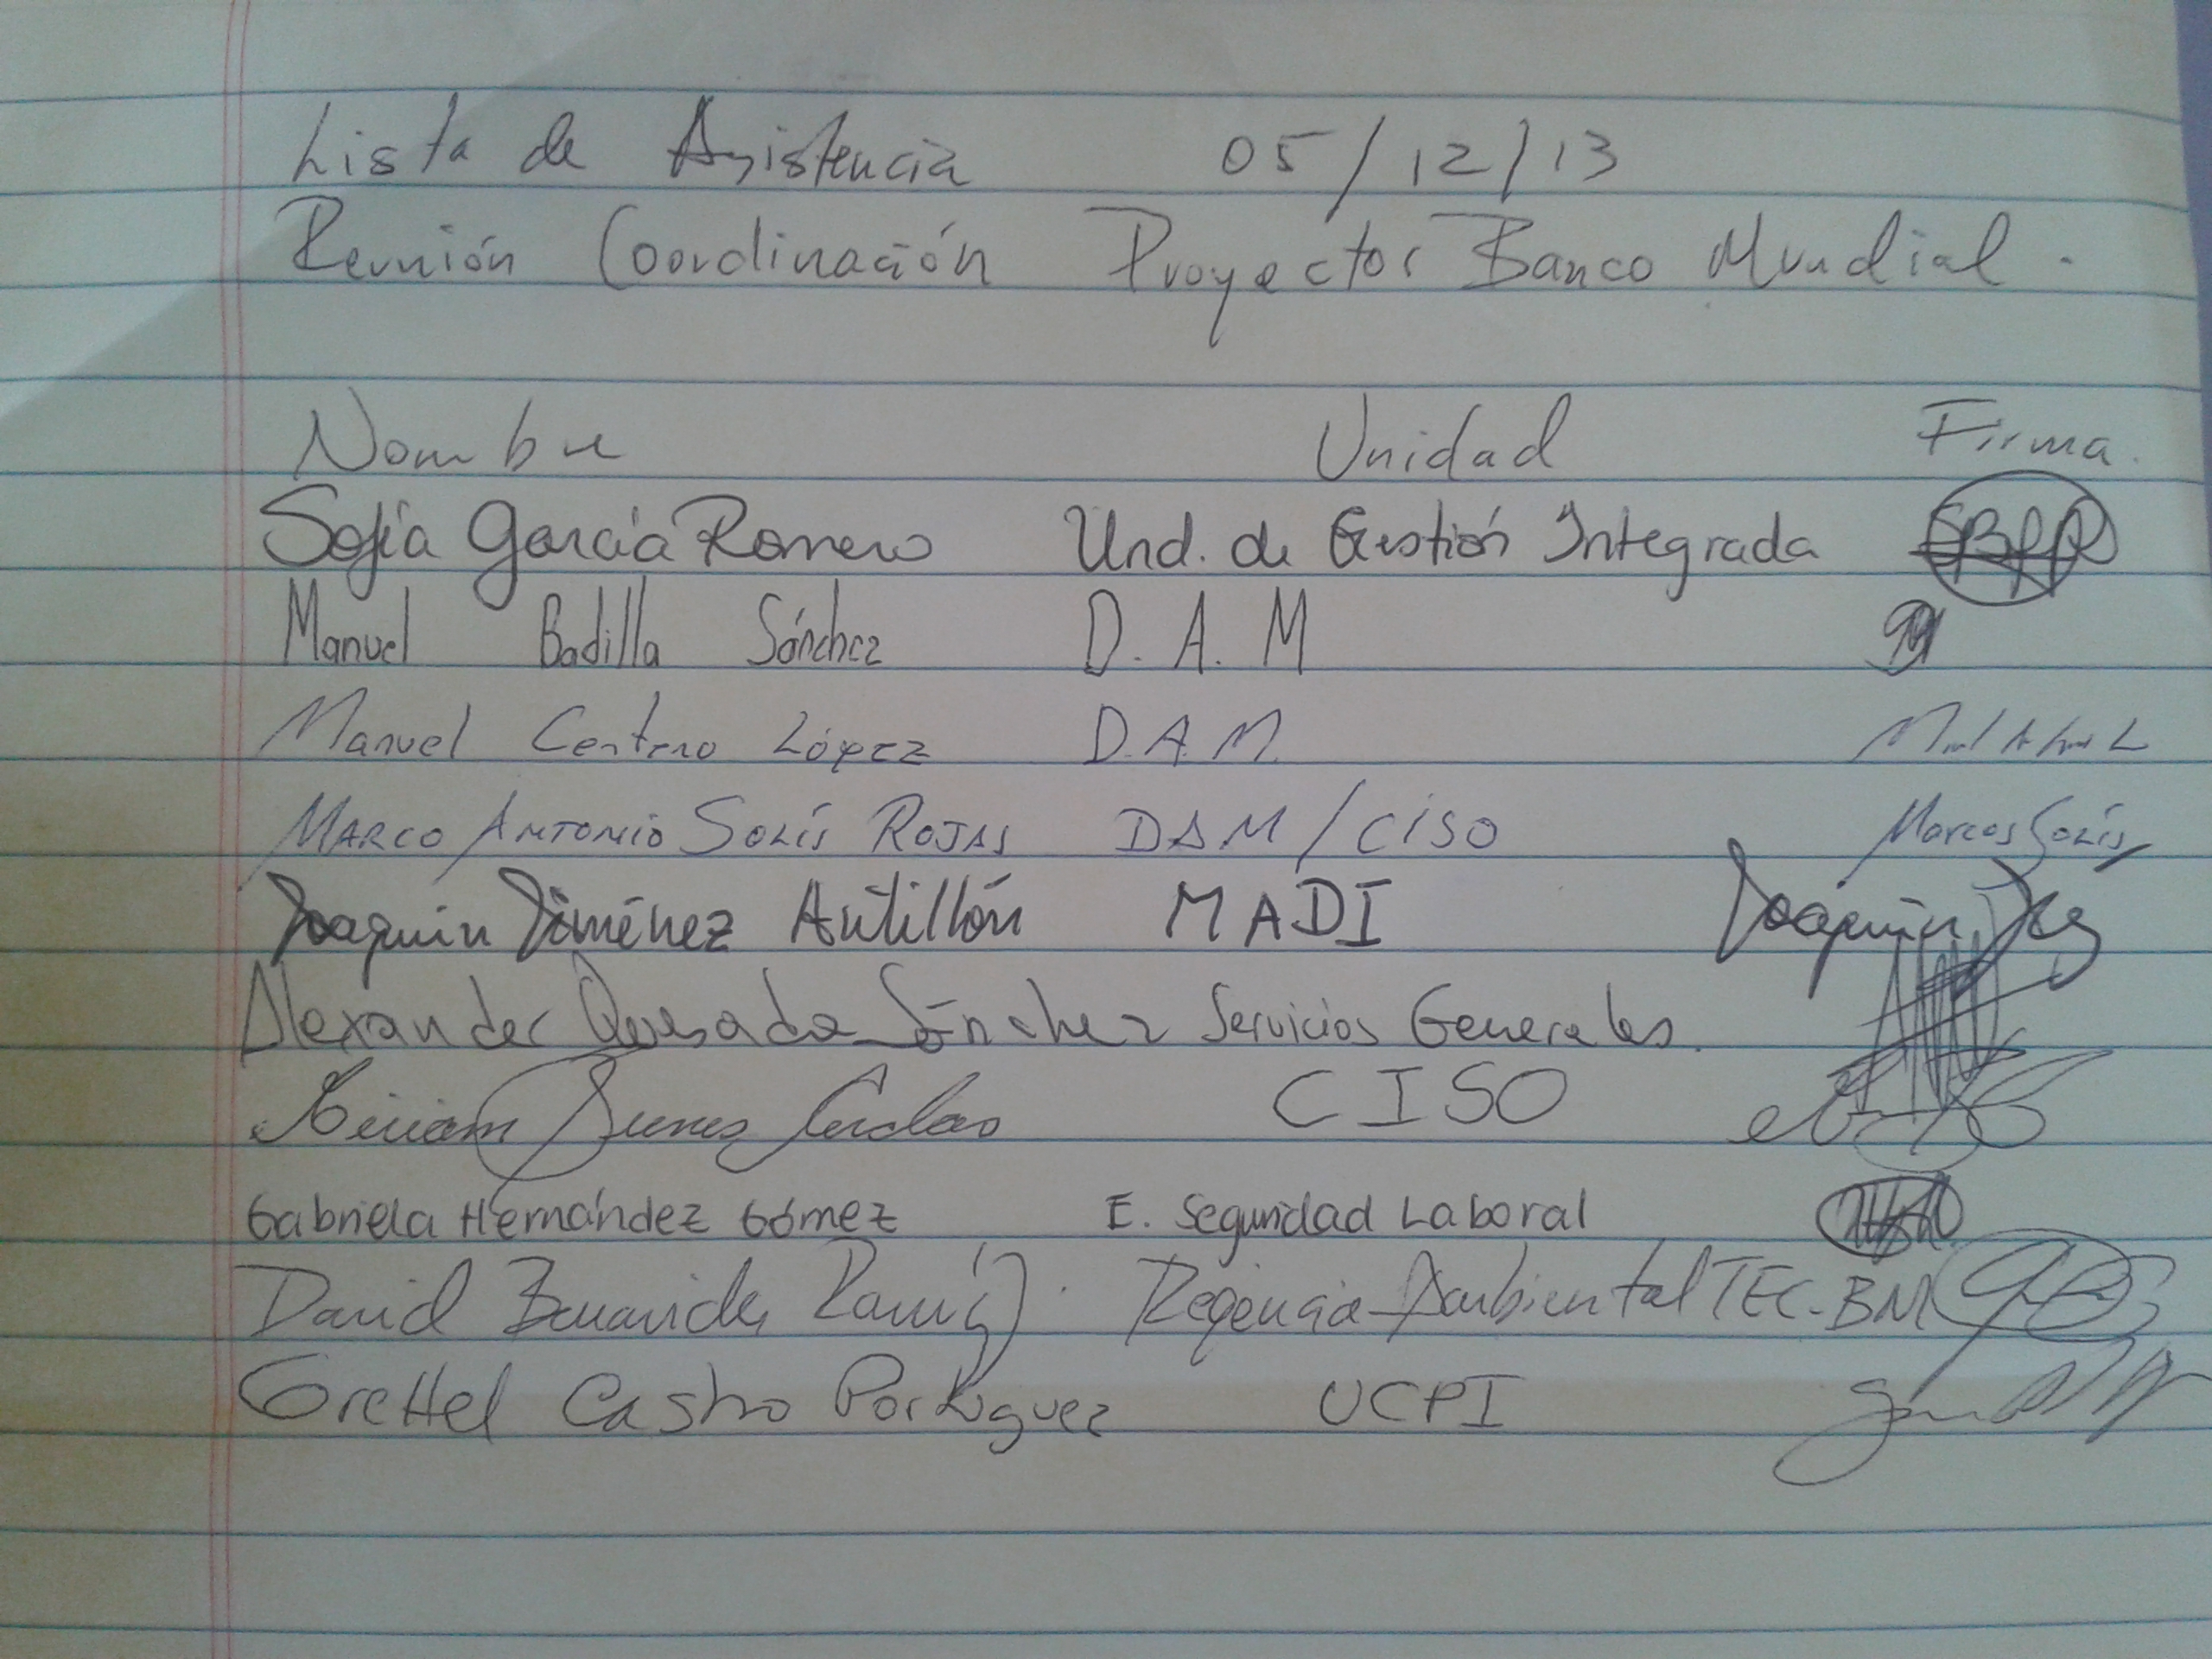 Lista de Asistencia 05/12/13
Reunión Coordinación Proyectos Banco Mundial.
Nombre Unidad Firma.
Sofía García Romero Und. de Gestión Integrada
Manuel Badilla Sánchez D. A. M
Manuel Centeno López D.A.M.
MARCO ANTONIO SOLÍS ROJAS DAM/CISO Marcos Solís
Joaquín Jiménez Antillón MADI Joaquín
Alexander Quesada Sánchez Servicios Generales.
CISO
Gabriela Hernández Gómez E. Seguridad Laboral
David Benavides Ramírez. Regencia Ambiental TEC-BM
Grettel Castro Portuguez UCPI